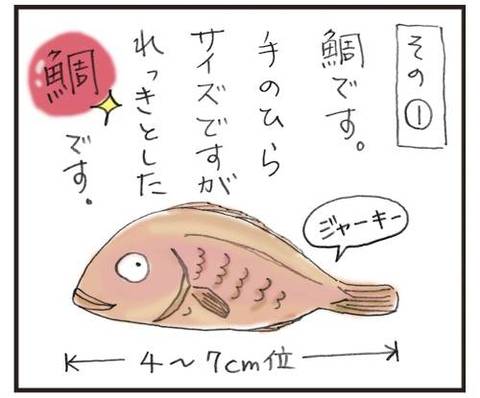 その①
鯛です。
手のひら
サイズですが
れっきとした
鯛です。
ジャーキー
4～7cm位